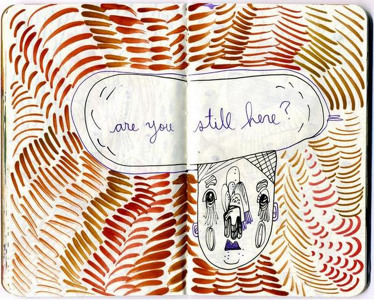 are you still here?